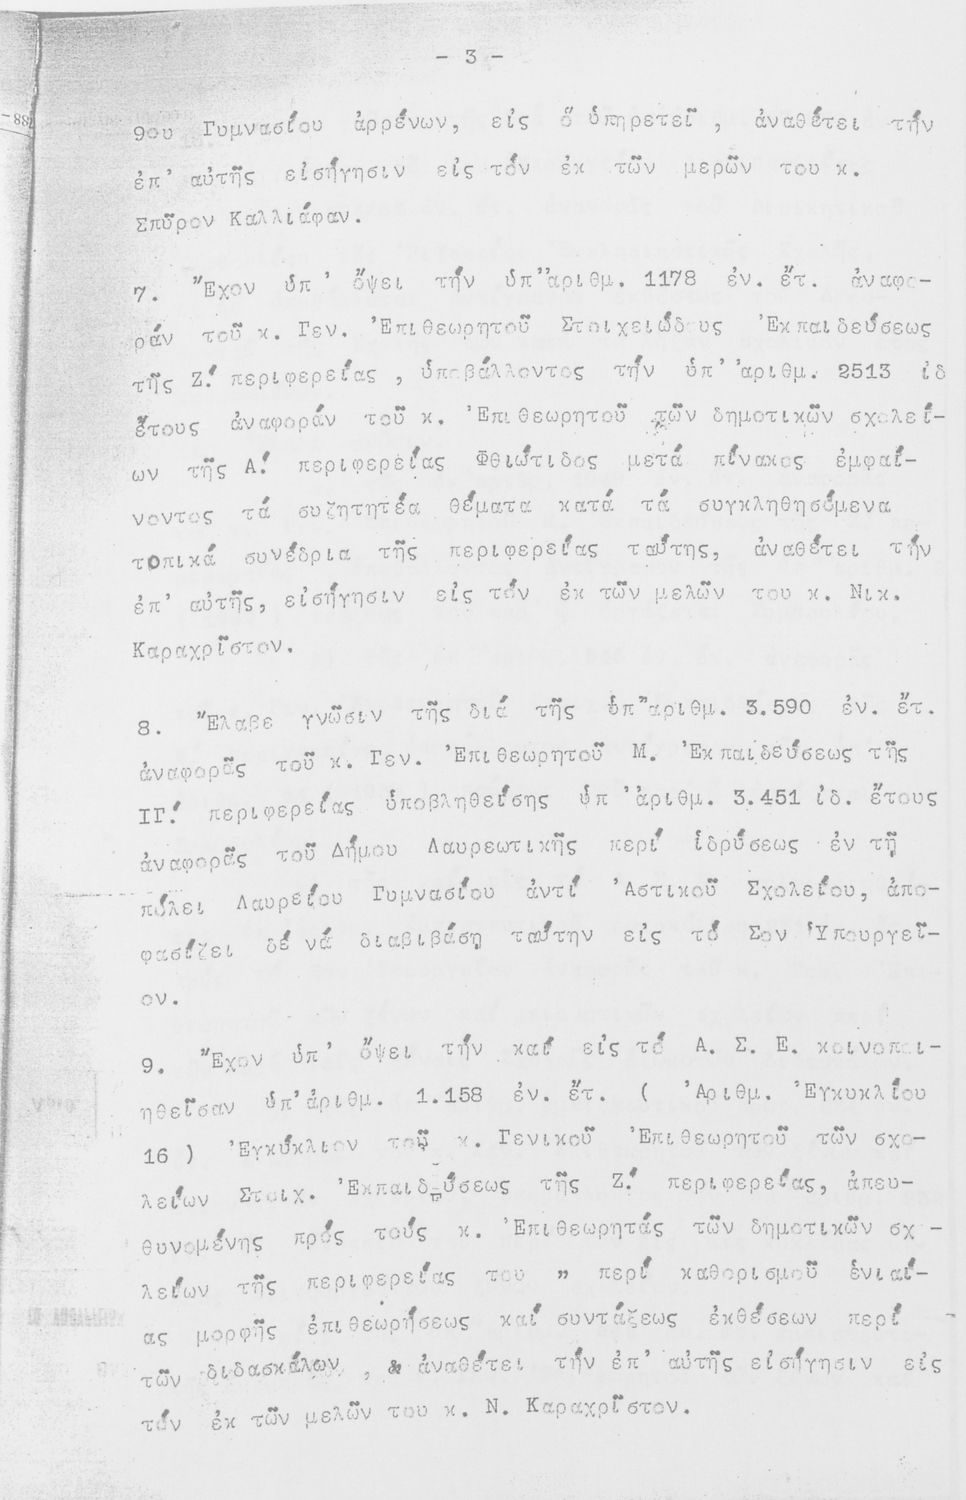 - 3 -
9ου Γυμνασίου ἀρρένων, εἰς ὅ ὑπηρετεῖ , ἀναθέτει τήν
ἐπ' αὐτῆς εἰσήγησιν εἰς τόν ἐκ τῶν μερῶν του κ.
Σπῦρον Καλλιάφαν.
7. Ἔχον ὑπ' ὄψει τήν ὑπ'ἀριθμ. 1178 ἐν. ἔτ. ἀναφο-
ράν τοῦ κ. Γεν. Ἐπιθεωρητοῦ Στοιχειώδους Ἐκπαιδεύσεως
τῆς Ζ! περιφερείας , ὑποβάλλοντος τήν ὑπ'ἀριθμ. 2513 ἰδ
ἔτους ἀναφοράν τοῦ κ. Ἐπιθεωρητοῦ τῶν δημοτικῶν σχολεί-
ων τῆς Α! περιφερείας Φθιώτιδος μετά πίνακος ἐμφαί-
νοντος τά συζητητέα θέματα κατά τά συγκληθησόμενα
τοπικά συνέδρια τῆς περιφερείας ταύτης, ἀναθέτει τήν
ἐπ' αὐτῆς, εἰσήγησιν εἰς τόν ἐκ τῶν μελῶν του κ. Νικ.
Καραχρῖστον.
8. Ἔλαβε γνῶσιν τῆς διά τῆς ὑπ'ἀριθμ. 3.590 ἐν. ἔτ.
ἀναφορᾶς τοῦ κ. Γεν. Ἐπιθεωρητοῦ Μ. Ἐκπαιδεύσεως τῆς
ΙΓ! περιφερείας ὑποβληθείσης ὑπ'ἀριθμ. 3.451 ἰδ. ἔτους
ἀναφορᾶς τοῦ Δήμου Λαυρεωτικῆς περί ἱδρύσεως ἐν τῇ
πόλει Λαυρείου Γυμνασίου ἀντί Ἀστικοῦ Σχολείου, ἀπο-
φασίζει δέ νά διαβιβάσῃ ταύτην εἰς τό Σον Ὑπουργεῖ-
ον.
9. Ἔχον ὑπ' ὄψει τήν καί εἰς τό Α. Σ. Ε. κοινοποι-
ηθεῖσαν ὑπ'ἀριθμ. 1.158 ἐν. ἔτ. ( Ἀριθμ. Ἐγκυκλίου
16 ) Ἐγκύκλιον τοῦ κ. Γενικοῦ Ἐπιθεωρητοῦ τῶν σχο-
λείων Στοιχ. Ἐκπαιδεύσεως τῆς Ζ! περιφερείας, ἀπευ-
θυνομένης πρός τούς κ. Ἐπιθεωρητάς τῶν δημοτικῶν σχ -
λείων τῆς περιφερείας του " περί καθορισμοῦ ἑνιαί-
ας μορφῆς ἐπιθεωρήσεως καί συντάξεως ἐκθέσεων περί
τῶν διδασκάλων , & ἀναθέτει τήν ἐπ' αὐτῆς εἰσήγησιν εἰς
τόν ἐκ τῶν μελῶν του κ. Ν. Καραχρῖστον.